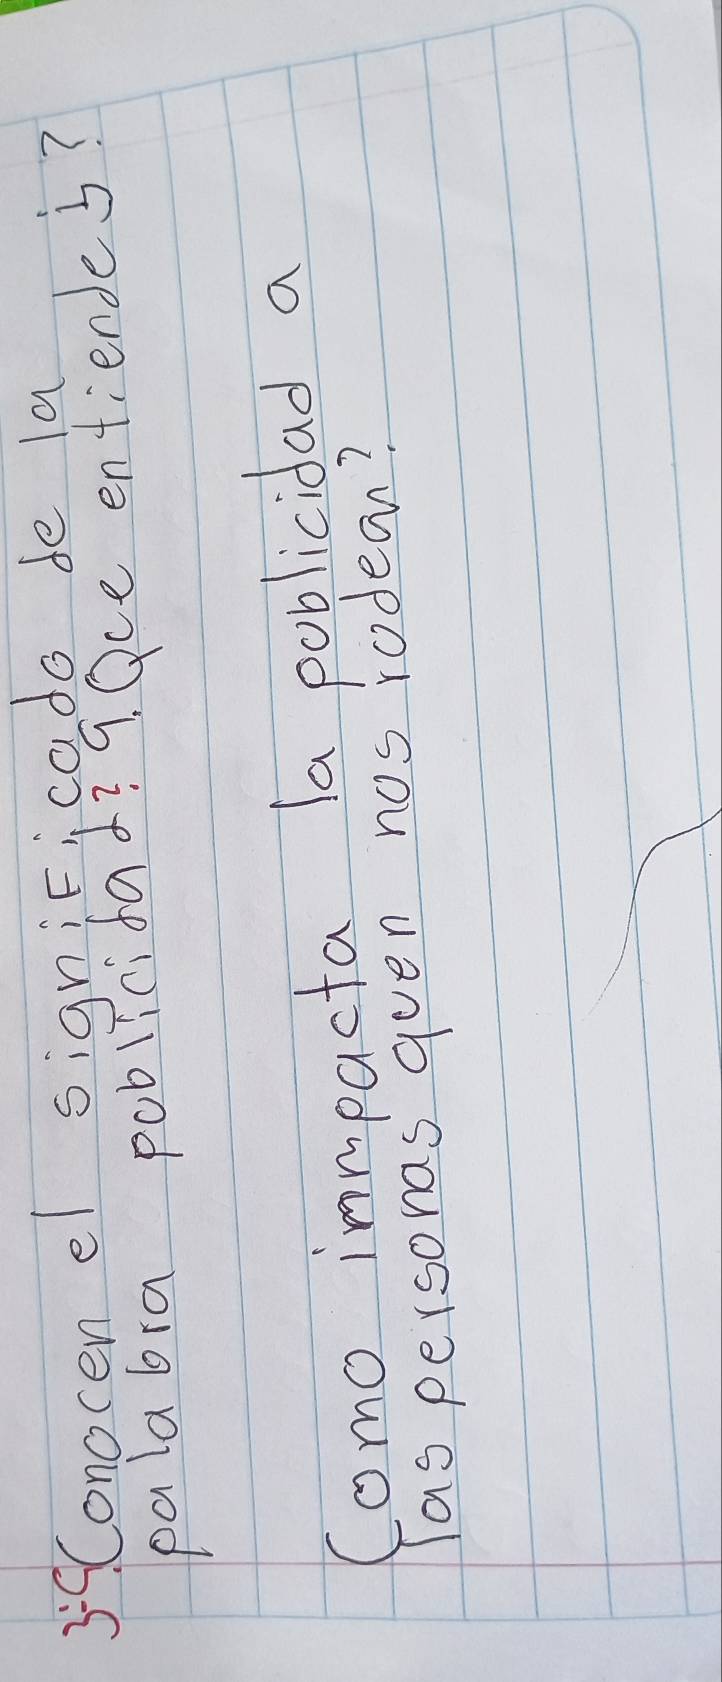 3-¿Conocen el significado de la
palabra publicidad? ¿Que entiendes?
Como immpacta la publicidad a
las personas quen nos rodean?